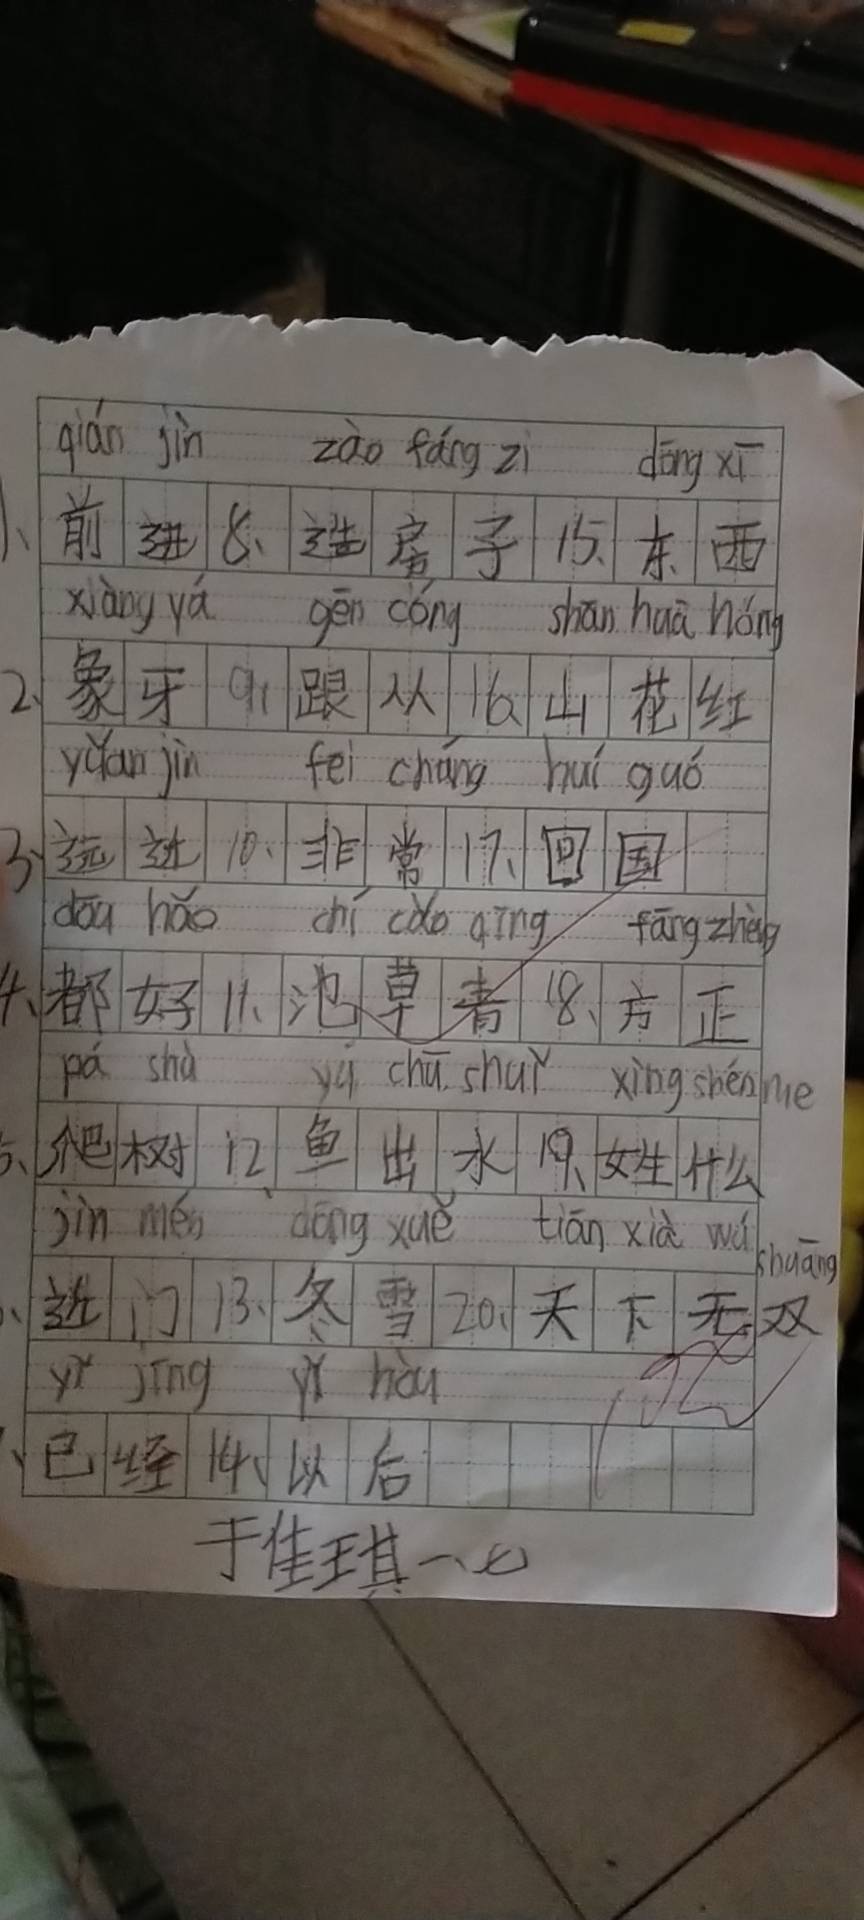 qián jìn zào fáng zi dōng xī
1、前进 8、造房子 15、东西
xiàng yá gēn cóng shān huā hóng
2、象牙 9、跟从 16、山花红
yuǎn jìn fei cháng huí guó
3、远近 10、非常 17、回国
dōu hǎo chí cǎo qīng fāng zhèng
4、都好 11、池草青 18、方正
pá shù yú chū shuǐ xìng shén me
5、爬树 12、鱼出水 19、女生什么
jìn mén dōng xuě tiān xià wú shuāng
近门 13、冬雪 20、天下无双
yǐ jīng yǐ hòu
已经 14、以后
于佳琪 一、七